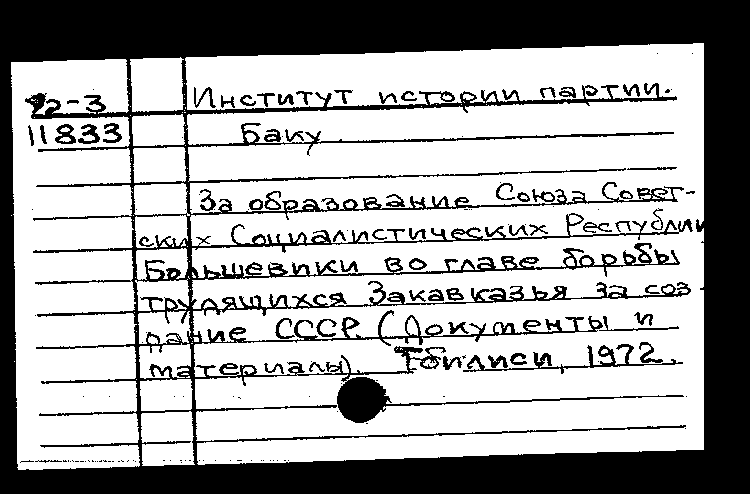 92-3
11833
Институт истории партии.
Баку.
За образование Союза Совет-
ских Социалистических Республик
Большевики во главе борьбы
трудящихся Закавказья за соз-
дание СССР. (Документы и
материалы). Тбилиси, 1972.